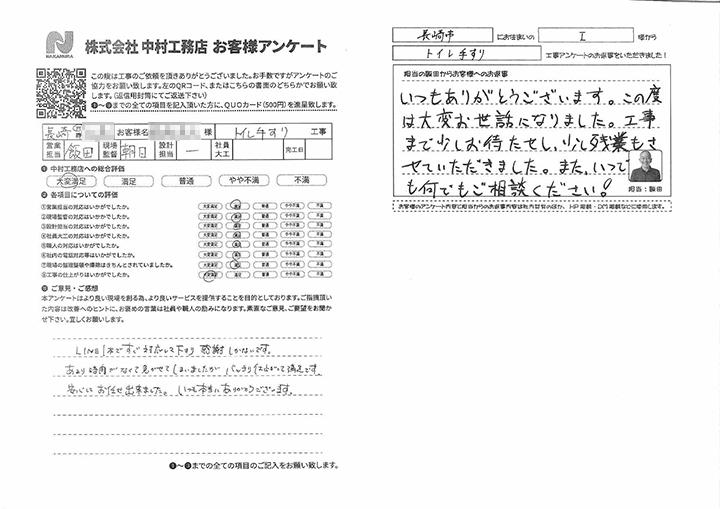 NAKAMURA
株式会社 中村工務店 お客様アンケート
この度は工事のご依頼を頂きありがとうございました。お手数ですがアンケートのご
協力をお願い致します。左のQRコード、またはこちらの書面のどちらかでお願い
致します。(返信用封筒にてご返送下さい)
❶～❸までの全ての項目を記入頂いた方に、QUOカード(500円)を進呈致します。
長崎 お客様名 様 トイレ手すり 工事
営業担当 飯田 現場監督 朝日 設計担当 ー 社員大工 完工日
❶ 中村工務店への総合評価
大変満足 満足 普通 やや不満 不満
❷ 各項目についての評価
①営業担当の対応はいかがでしたか。 大変満足 満足 普通 やや不満 不満
②現場監督の対応はいかがでしたか。 大変満足 満足 普通 やや不満 不満
③設計担当の対応はいかがでしたか。 大変満足 満足 普通 やや不満 不満
④社員大工の対応はいかがでしたか。 大変満足 満足 普通 やや不満 不満
⑤職人の対応はいかがでしたか。 大変満足 満足 普通 やや不満 不満
⑥社内の電話対応等はいかがでしたか。 大変満足 満足 普通 やや不満 不満
⑦現場の整理整頓や掃除はきちんとされていましたか。 大変満足 満足 普通 やや不満 不満
⑧工事の仕上がりはいかがでしたか。 大変満足 満足 普通 やや不満 不満
❸ ご意見・ご感想
本アンケートはより良い現場を創る為、より良いサービスを提供することを目的としております。ご指摘頂い
た内容は改善へのヒントに、お褒めの言葉は社員や職人の励みになります。素直なご意見、ご要望をお聞か
せ下さい。宜しくお願いします。
LINE1本ですぐ対応して下さり 感謝しかないです。
あまり時間がなくて急がせてしまいましたが バッチリ仕上がって満足です。
安心して お任せ出来ました。 いつも本当にありがとうございます。
❶～❸までの全ての項目のご記入をお願い致します。
長崎市 にお住まいの I 様から
トイレ手すり 工事アンケートのお返事をいただきました!
担当の飯田からお客様へのお返事
いつもありがとうございます。この度
は大変お世話になりました。工事
まで少しお待たせし、少し残業もさ
せていただきました。また、いつで
も何でもご相談ください!
担当:飯田